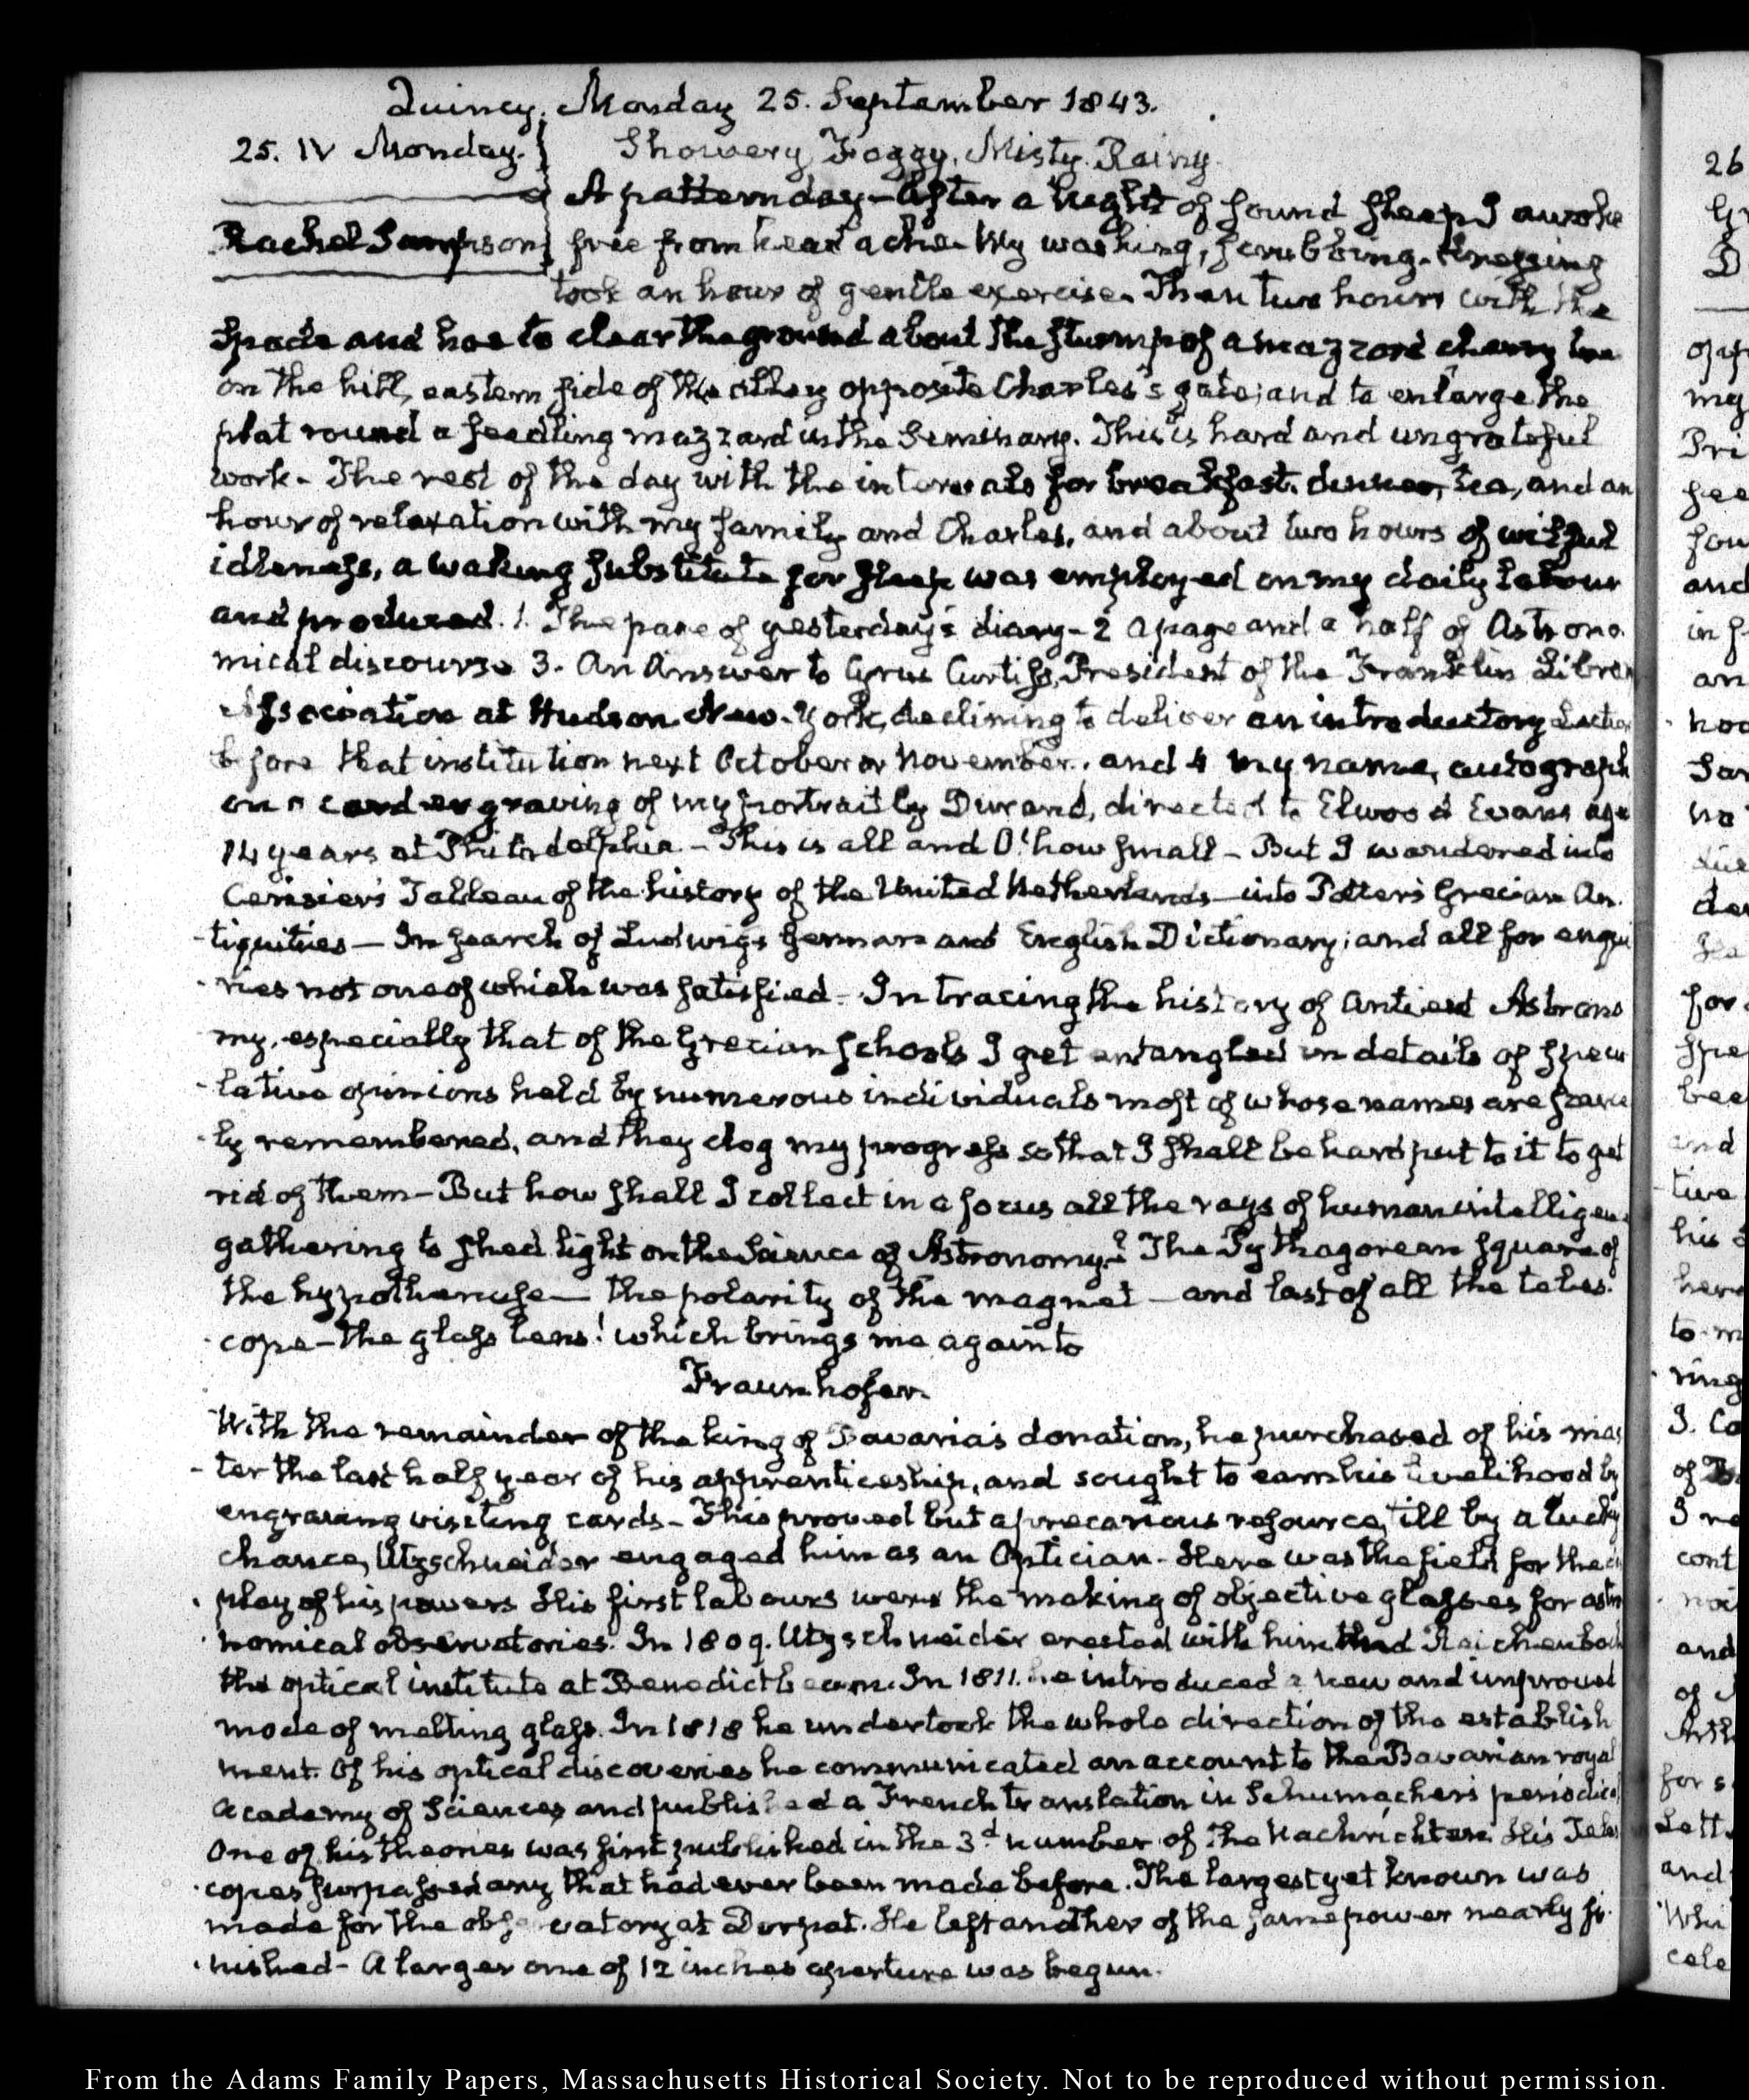 Quincy, Monday 25. September 1843.
25. IV Monday. Showery Foggy, Misty. Rainy
A pattern day - After a night of sound sleep I awoke
Rachel Sampson free from head ache. My washing, scrubbing. dressing
took an hour of gentle exercise. Then two hours with the
spade and hoe to clear the ground about the stump of a mazzard cherry tree
on the hill, eastern side of the alley opposite Charles's gate; and to enlarge the
plat round a seedling mazzard in the Seminary. This is hard and ungrateful
work. The rest of the day with the intervals for breakfast. dinner, tea, and an
hour of relaxation with my family and Charles, and about two hours of wilful
idleness, a waking substitute for sleep was employed on my daily labour
and produced. 1. The page of yesterday's diary - 2 a page and a half of Astrono
mical discourse 3. An Answer to Cyrus Curtiss, President of the Franklin Libra
Association at Hudson New-York, declining to deliver an introductory Lectur
before that institution next October or November. and 4 my name, autograph
on a card engraving of my portrait by Durand, directed to Elwood Evans age
14 years at Philadelphia - This is all and O! how small - But I wandered into
Cerisier's Tableau of the history of the United Netherlands - into Potter's Grecian An.
-tiquities - In search of Ludwig's German and English Dictionary; and all for enqui
-ries not one of which was satisfied - In tracing the history of antient Astrono
my, especially that of the Grecian schools I get entangled in details of specu
-lative opinions held by numerous individuals most of whose names are scarce
-ly remembered, and they clog my progress so that I shall be hard put to it to get
rid of them - But how shall I collect in a focus all the rays of human intelligence
gathering to shed light on the Science of Astronomy? The Pythagorean square of
the hypothenuse - the polarity of the magnet - and last of all the teles.
-cope - the glass lens! which brings me again to
Fraunhofer.
With the remainder of the king of Bavaria's donation, he purchased of his mas
-ter the last half year of his apprenticeship, and sought to earn his livelihood by
engraving visiting cards - This proved but a precarious resource, till by a lucky
chance, Utzschneider engaged him as an Optician - Here was the field for the
play of his powers His first labours were the making of objective glasses for astro
nomical observatories. In 1809. Utzschneider erected with him and Reichenbach
the optical institute at Benedictbeurn. In 1811. he introduced a new and improved
mode of melting glass. In 1818 he undertook the whole direction of the establish
ment. Of his optical discoveries he communicated an account to the Bavarian royal
Academy of Sciences and published a French translation in Schumacher's periodical
One of his theories was first published in the 3d number of the Nachrichten. His Teles
-copes surpassed any that had ever been made before. The largest yet known was
made for the observatory at Dorpat. He left another of the same power nearly fi.
-nished - A larger one of 12 inches aperture was begun.
From the Adams Family Papers, Massachusetts Historical Society. Not to be reproduced without permission.